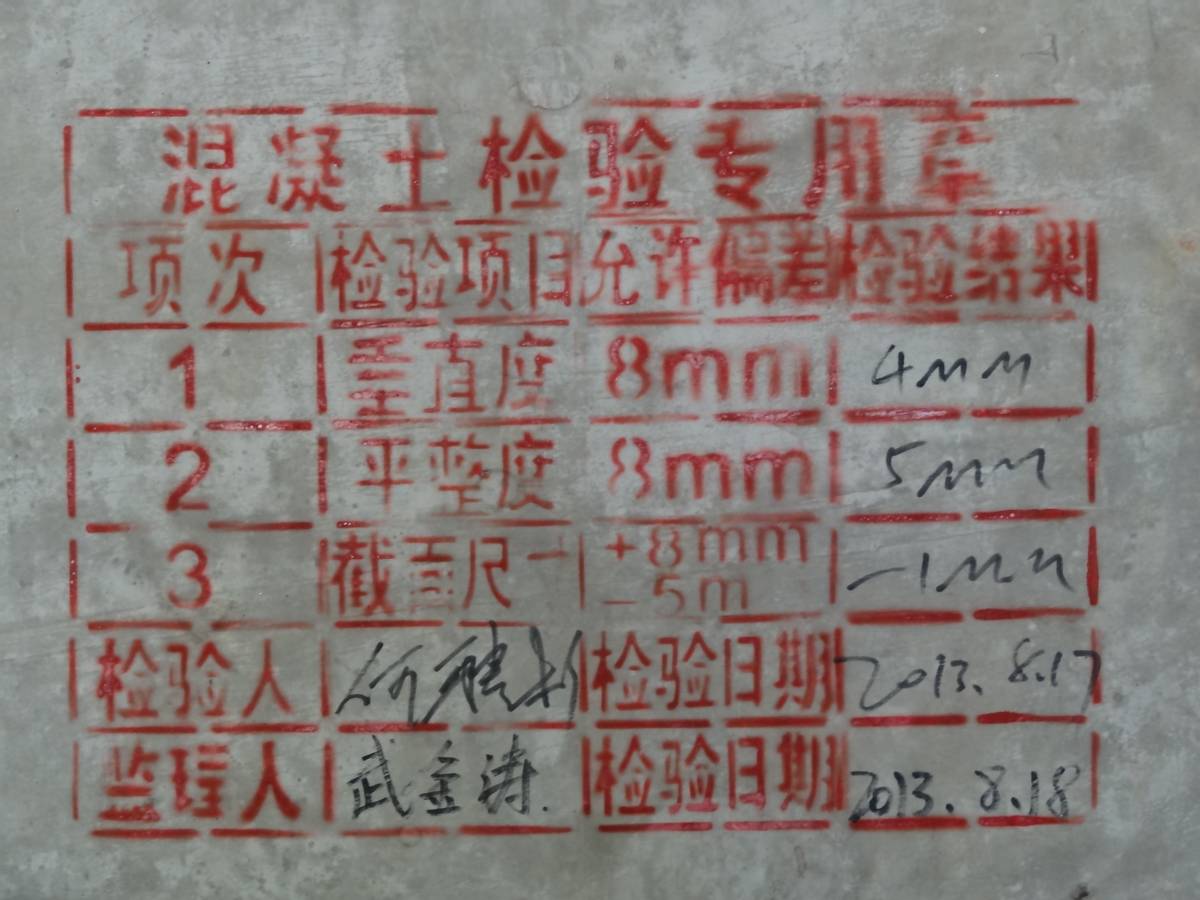 混凝土检验专用章
项次 检验项目 允许偏差 检验结果
1 垂直度 8mm 4mm
2 平整度 8mm 5mm
3 截面尺寸 +8mm -5m -1mm
检验人 何 检验日期 2013.8.17
监理人 武金涛. 检验日期 2013.8.18